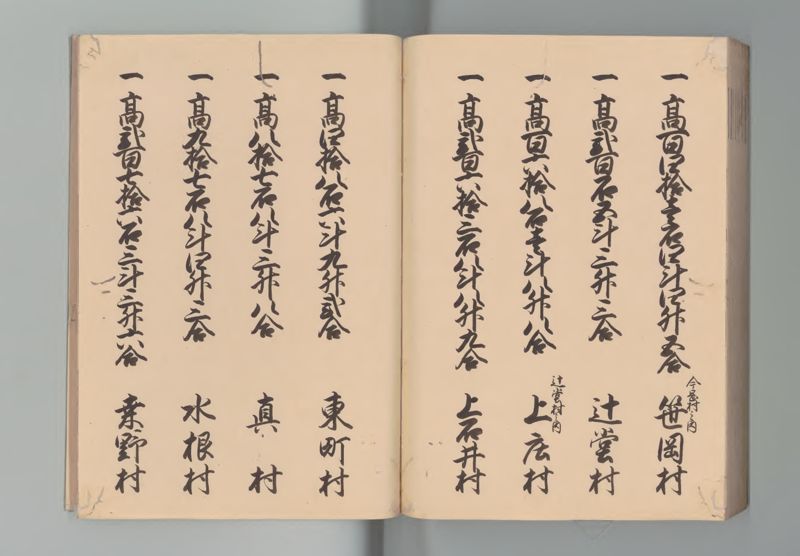 一 高百四拾壱石四斗四升五合 今泉村之内 笹岡村
一 高弐百石五斗三升三合 辻堂村
一 高百六拾八石壱斗八升八合 辻堂村之内 上庄村
一 高弐百六拾三石八斗八升九合 上石井村
一 高四拾八石六斗九升弐合 東町村
一 高八拾七石八斗三升八合 真村
一 高九拾七石八斗四升三合 水根村
一 高弐百七拾六石三斗三升六合 桑野村